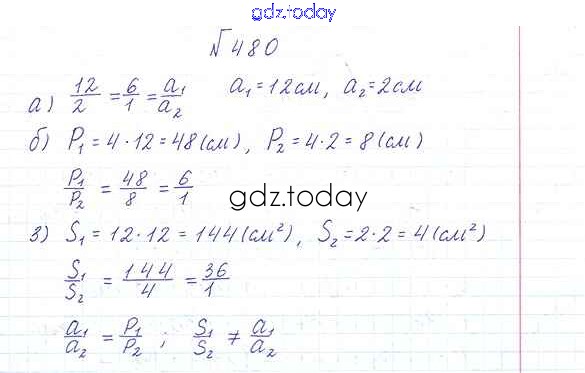 gdz.today
№480
а) 12/2 = 6/1 = a₁/a₂  a₁=12см, a₂=2см
б) P₁=4·12=48(см), P₂=4·2=8(см)
P₁/P₂ = 48/8 = 6/1
gdz.today
з) S₁=12·12=144(см²), S₂=2·2=4(см²)
S₁/S₂ = 144/4 = 36/1
a₁/a₂ = P₁/P₂ ; S₁/S₂ ≠ a₁/a₂